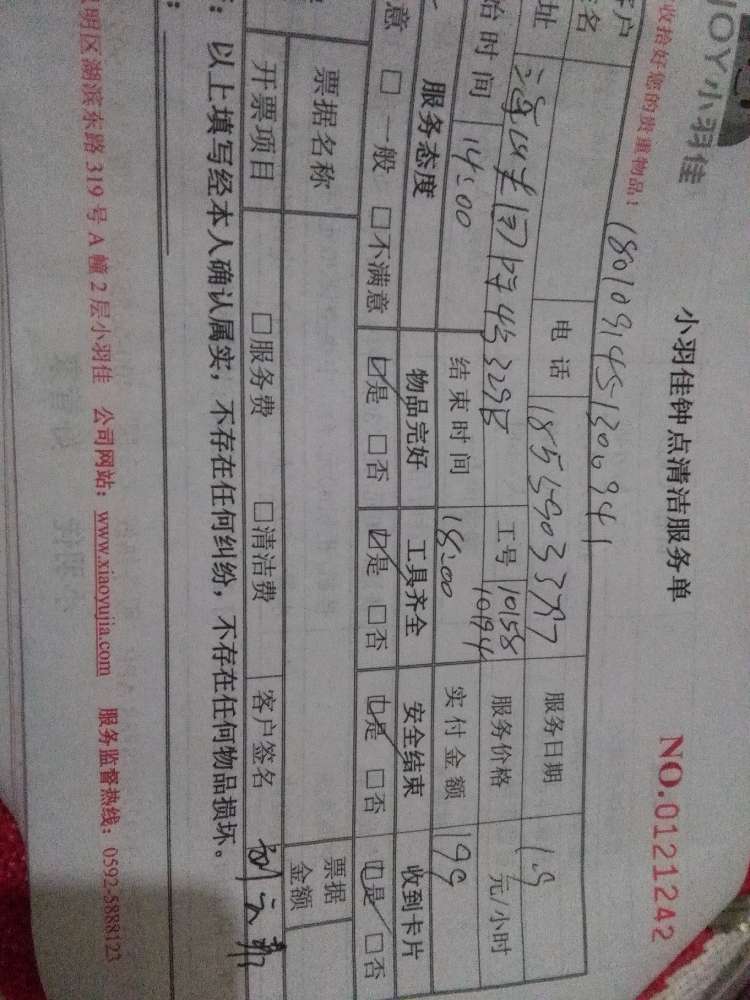 JOY小羽佳
小羽佳钟点清洁服务单
NO.0121242
收拾好您的贵重物品!
电话
服务日期 1.9
址
329
工号 10158
10194
服务价格 元/小时
始时间 14:00 结束时间 18:00 实付金额 199
服务态度 物品完好 工具齐全 安全结束 收到卡片
意 □一般 □不满意 ☑是 □否 ☑是 □否 ☑是 □否 ☑是 □否
票据名称 票据金额
开票项目 □服务费 □清洁费 客户签名
:以上填写经本人确认属实,不存在任何纠纷,不存在任何物品损坏。
明区湖滨东路319号A幢2层小羽佳 公司网站:www.xiaoyujia.com 服务监督热线:0592-5888123